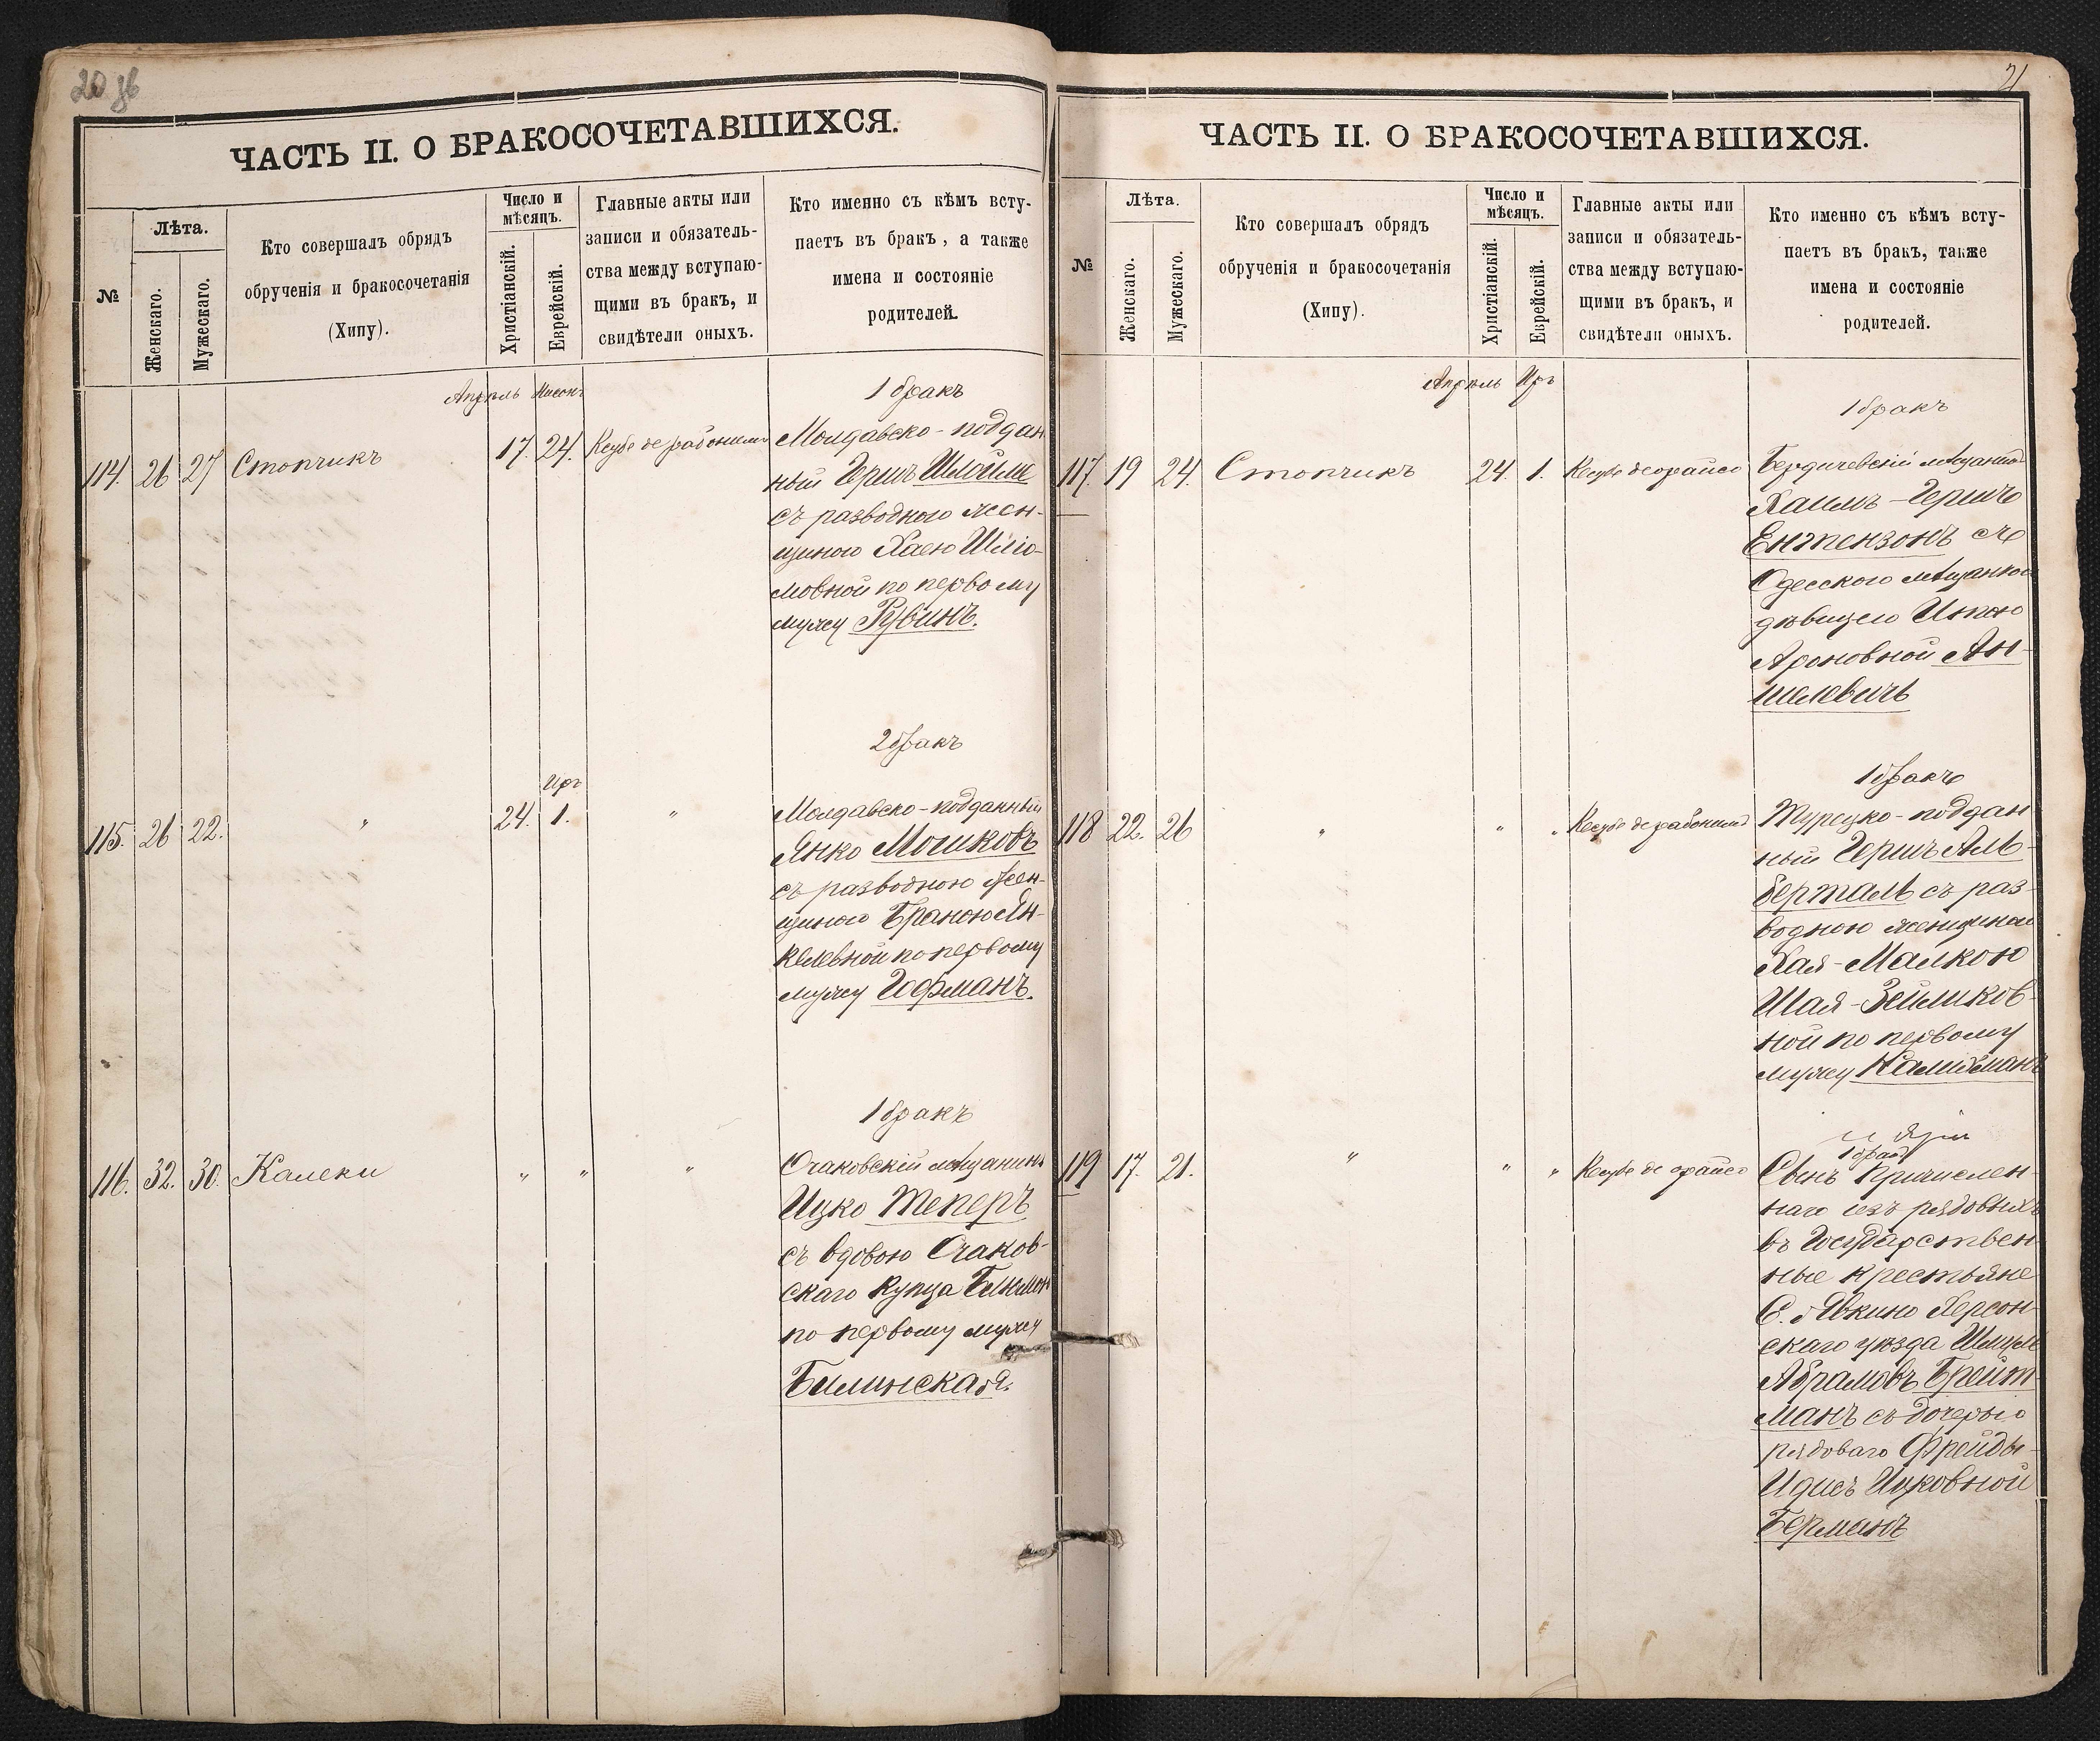 20 зв
ЧАСТЬ II. О БРАКОСОЧЕТАВШИХСЯ.
№
Лѣта.
Женскаго.
Мужескаго.
Кто совершалъ обрядъ
обрученія и бракосочетанія
(Хипу).
Число и
мѣсяцъ.
Христіанскій.
Еврейскій.
Главные акты или
записи и обязатель-
ства между вступаю-
щими въ бракъ, и
свидѣтели оныхъ.
Кто именно съ кѣмъ всту-
паетъ въ бракъ, а также
имена и состояніе
родителей.
Апрѣль
1 бракъ
114. 26 27 Стопчикъ 17. 24.
Молдавско-поддан
ный Гершъ Шлойме
съ разводною жен-
щиною Хаею Шліо-
мовной по первому
мужу Рубинъ.
2 бракъ
Иръ
115. 26 22. " 24. 1. "
Молдавско-подданный
Янко Мошковъ
съ разводною жен-
щиною Браною Ян-
келевной по первому
мужу Гофманъ.
1 бракъ
116. 32. 30. Калеки " " "
Очаковскій мѣщанинъ
Ицко Теперъ
съ вдовою Очаков-
скаго купца
по первому мужу
Билинская.
21
ЧАСТЬ II. О БРАКОСОЧЕТАВШИХСЯ.
№
Лѣта.
Женскаго.
Мужескаго.
Кто совершалъ обрядъ
обрученія и бракосочетанія
(Хипу).
Число и
мѣсяцъ.
Христіанскій.
Еврейскій.
Главные акты или
записи и обязатель-
ства между вступаю-
щими въ бракъ, и
свидѣтели оныхъ.
Кто именно съ кѣмъ всту-
паетъ въ бракъ, также
имена и состояніе
родителей.
Апрѣль Иръ
1 бракъ
117. 19 24. Стопчикъ 24. 1.
Бердичевскій
Хаимъ-Гершъ
Ентензонъ съ
Одесскою мѣщанкою
дѣвицею
Ароновной Ан-
шелевичъ
1 бракъ
118 22. 26 " " "
Турецко-поддан
ный Гершъ Аль-
берталь съ раз-
водною женщиной
Хая-Малкою
Шая-Зейликов-
ной по первому
мужу
1 бракъ
119 17. 21. " " "
Сынъ Причислен-
наго изъ рядовыхъ
въ Государствен-
ные крестьяне
С. Явкино Херсон-
скаго уѣзда Шмуль
Абрамовъ Брейт
манъ съ дочерью
рядоваго Фрейды-
Идисъ Ицковной
Берманъ